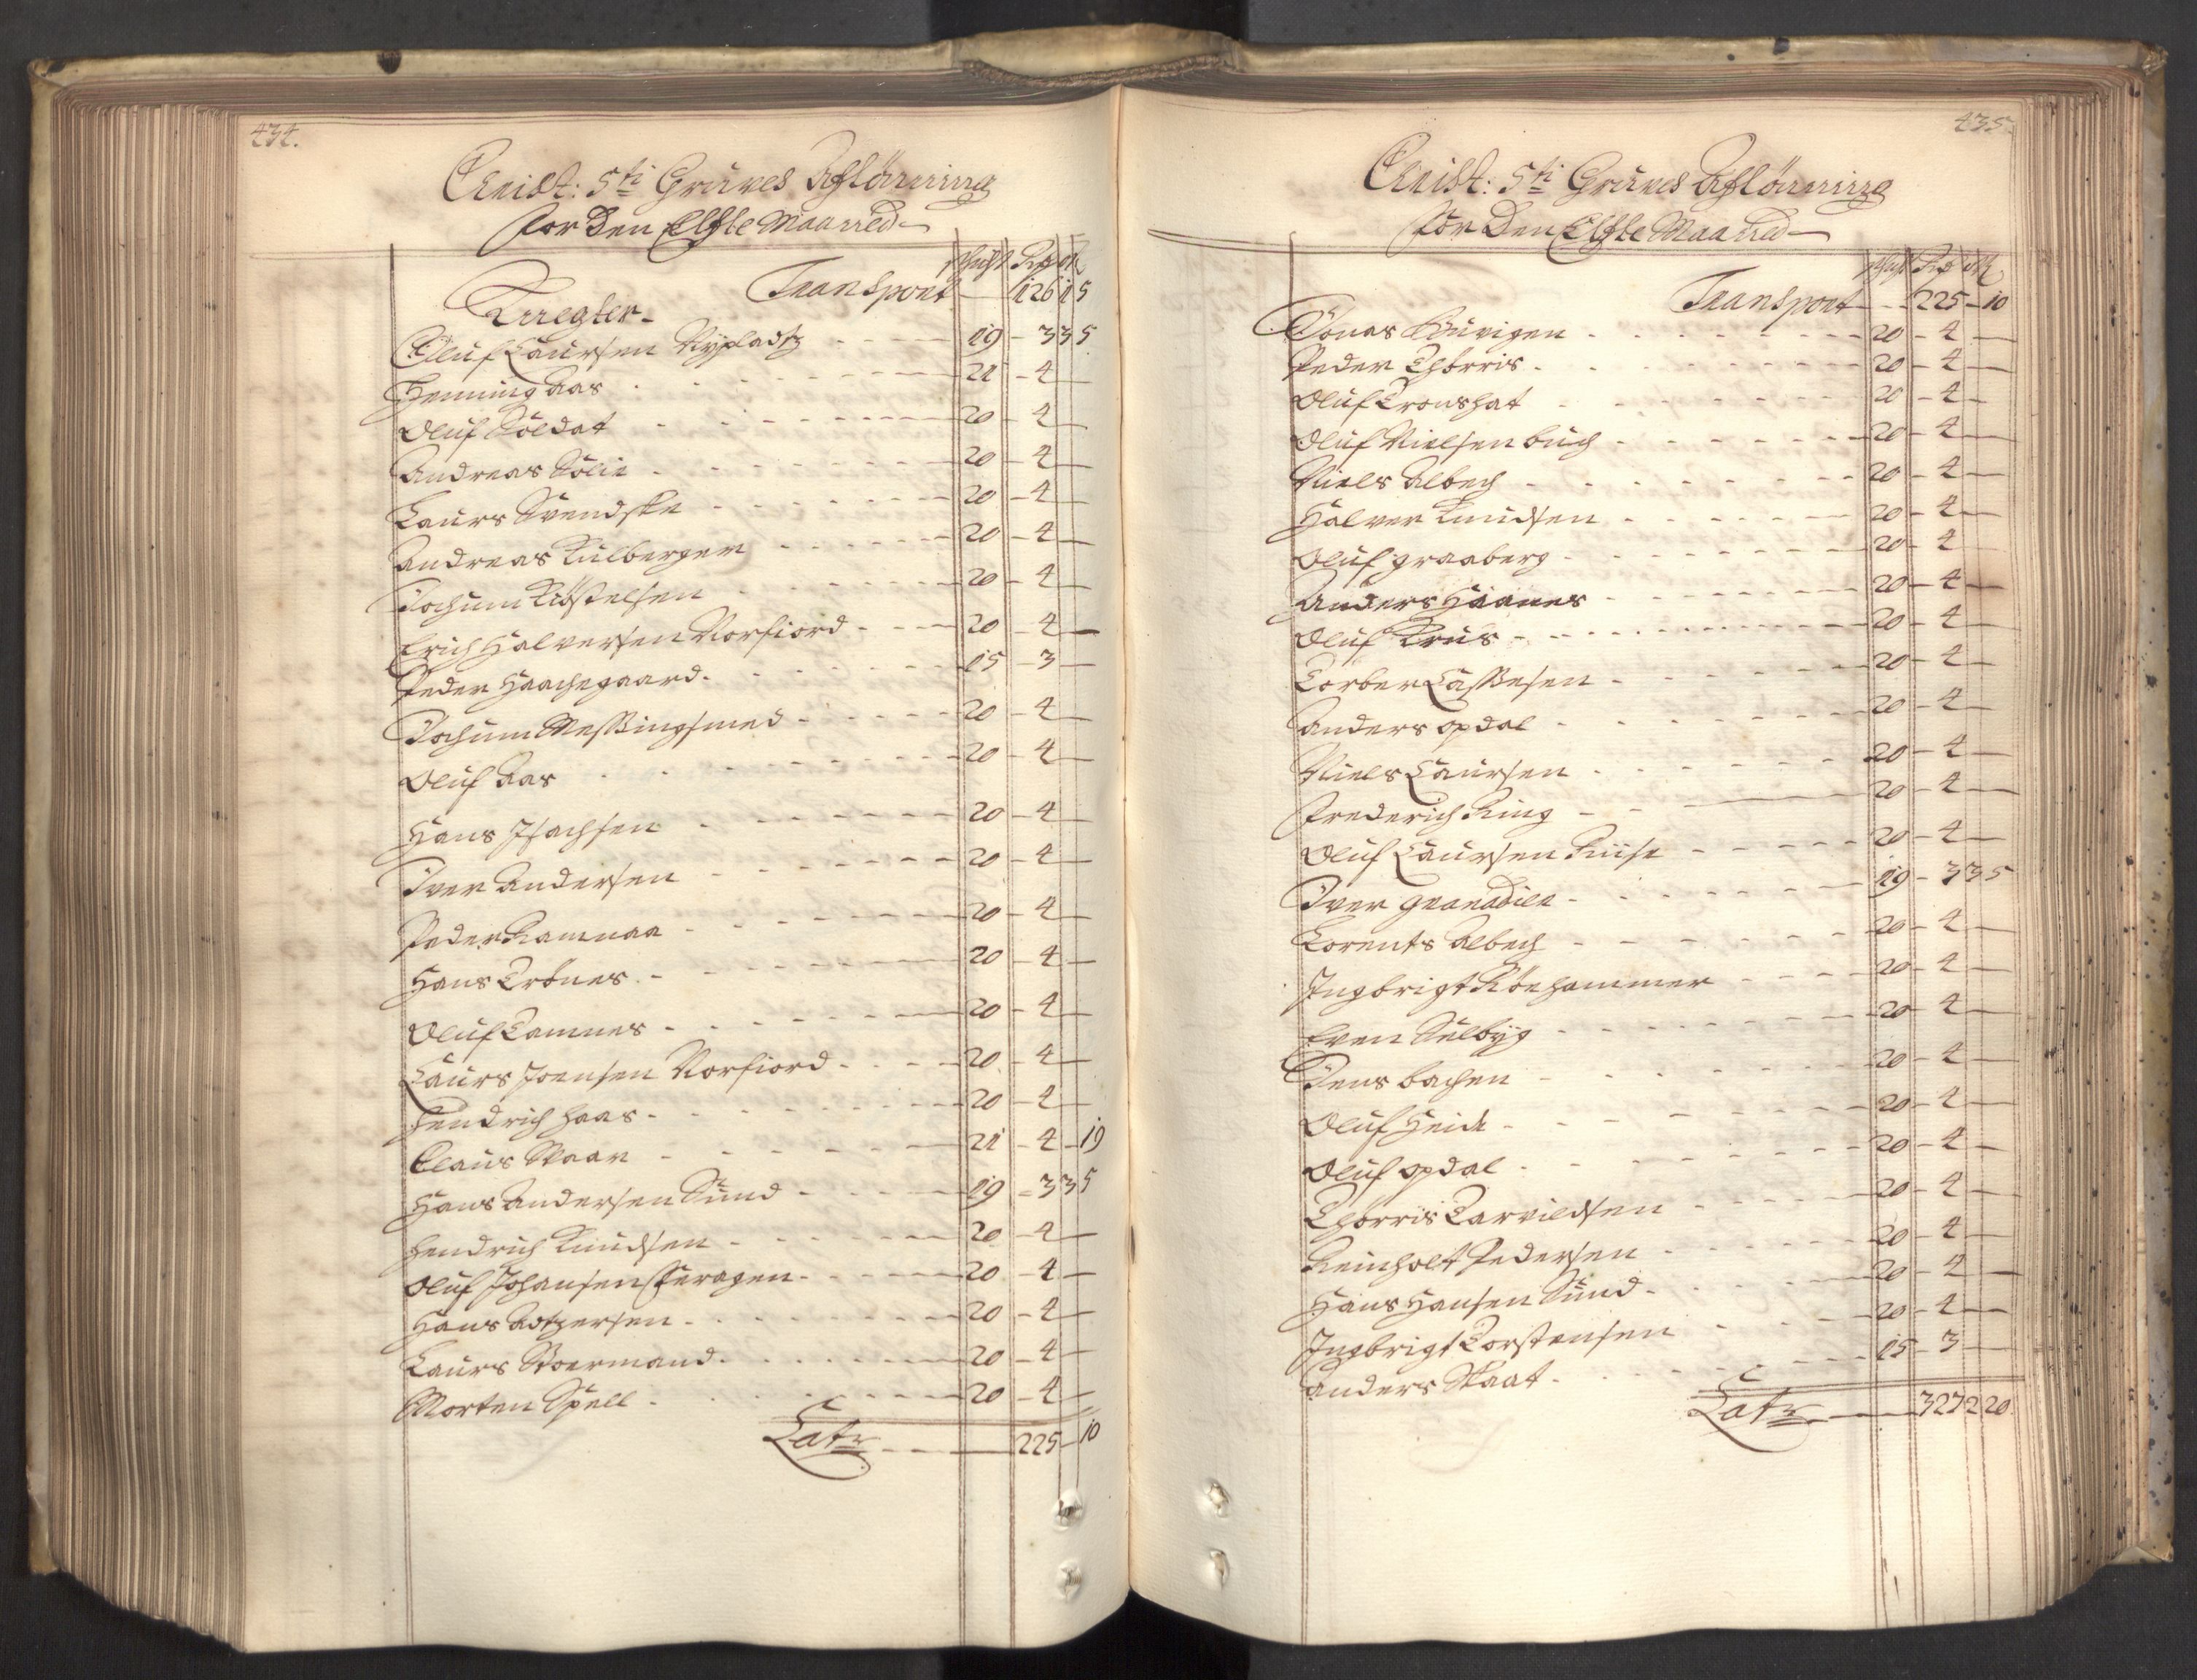 434.
Christ: 5ti Gruves Afflönning
for den Elfte Maaned
Schigt Rdr Ort ß
Transport — 126 1 5
Knegter
Oluf Laursen Nÿpladtz - 19 - 3 3 5
Henning Aas - 21 - 4 —
Oluf Soldat - 20 - 4 —
Andreas Solie - 20 - 4 —
Laurs Svendske - 20 - 4 —
Andreas Kulberger - 20 - 4 —
Jochum Kiöstelsen - 20 - 4 —
Erich Halversen Norfiord - 20 - 4 —
Peder Haachegaard - 15 - 3 —
Jochum Messingsmed - 20 - 4 —
Oluf Aas - 20 - 4 —
Hans Isachsen - 20 - 4 —
Iver Andersen - 20 - 4 —
Peder Ramnaa - 20 - 4 —
Hans Erbnes - 20 - 4 —
Oluf Tamnes - 20 - 4 —
Laurs Joensen Norfiord - 20 - 4 —
Hendrich Haas - 20 - 4 —
Claus Skaar - 21 - 4 - 19
Hans Andersen Sund - 19 - 3 3 5
Hendrich Knudsen - 20 - 4 —
Oluf Johansen Feragen - 20 - 4 —
Hans Adtzersen - 20 - 4 —
Laurs Stoermand - 20 - 4 —
Morten Spell - 20 - 4 —
Latr — 225 - 10
435.
Christ: 5ti Gruves Afflönning
for den Elfte Maaned
Schigt Rdr Ort ß
Transport — 225 - 10
Jonas Buvigen - 20 - 4 —
Peder Thorris - 20 - 4 —
Oluf Cronshat - 20 - 4 —
Oluf Nielsen buch - 20 - 4 —
Niels Albech - 20 - 4 —
Halver Knudsen - 20 - 4 —
Oluf graaberg - 20 - 4
Anders Haanes - 20 - 4 —
Oluf Krus - 20 - 4 —
Torber Lassesen - 20 - 4 —
Anders opdal - 20 - 4 —
Niels Laursen - 20 - 4 —
Frederich King - 20 - 4 —
Oluf Laursen Kiise - 20 - 4 —
Iver granadiln - 19 - 3 3 5
Lorents Albech - 20 - 4 —
Ingbrigt Röehammer - 20 - 4 —
Even Selbÿg - 20 - 4 —
Jens bachen - 20 - 4 —
Oluf Heide - 20 - 4 —
Oluf opdal - 20 - 4 —
Thorris Tarvildsen - 20 - 4 —
Reinholt Pedersen - 20 - 4 —
Hans Hansen Sund - 20 - 4 —
Ingbrigt Torstensen - 20 - 4 —
Anders Skaat - 15 - 3 —
Latr — 327 2 20